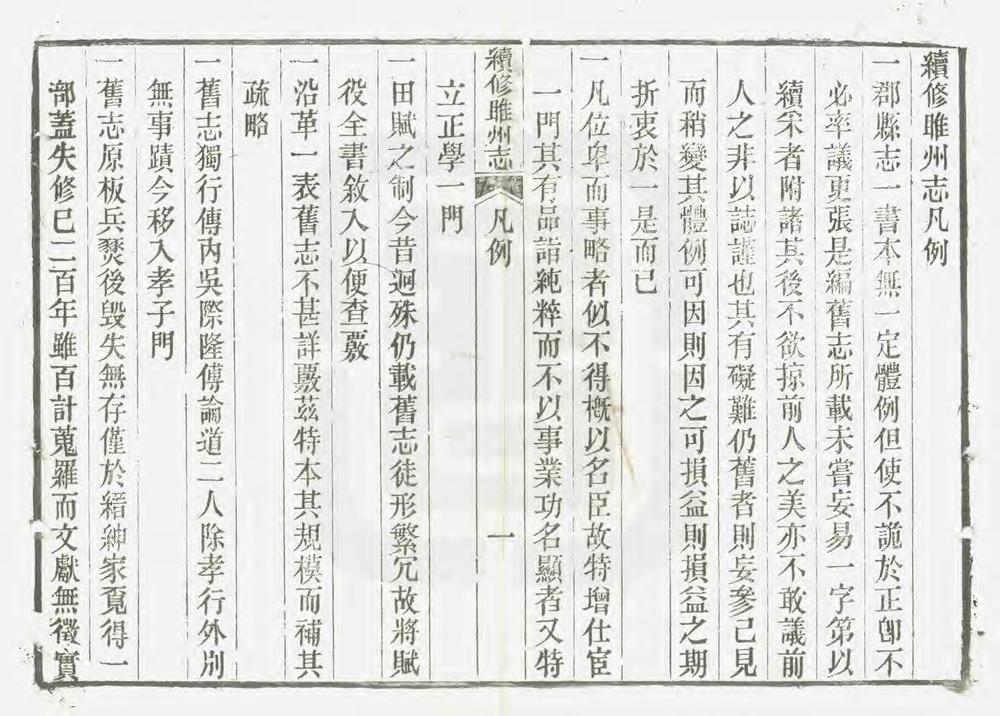 續修睢州志凡例
一郡縣志一書本無一定體例但使不詭於正卽不
必率議更張是編舊志所載未嘗妄易一字第以
續采者附諸其後不欲掠前人之美亦不敢議前
人之非以誌謹也其有礙難仍舊者則妄參己見
而稍變其體例可因則因之可損益則損益之期
折衷於一是而已
一凡位卑而事略者似不得概以名臣故特增仕宦
一門其有品詣純粹而不以事業功名顯者又特
續修睢州志 凡例 一
立正學一門
一田賦之制今昔迥殊仍載舊志徒形繁冗故將賦
役全書敘入以便查覈
一沿革一表舊志不甚詳覈茲特本其規模而補其
疏略
一舊志獨行傳內吳際隆傅論道二人除孝行外別
無事蹟今移入孝子門
一舊志原板兵燹後毀失無存僅於縉紳家覓得一
部蓋失修巳二百年雖百計蒐羅而文獻無徵實